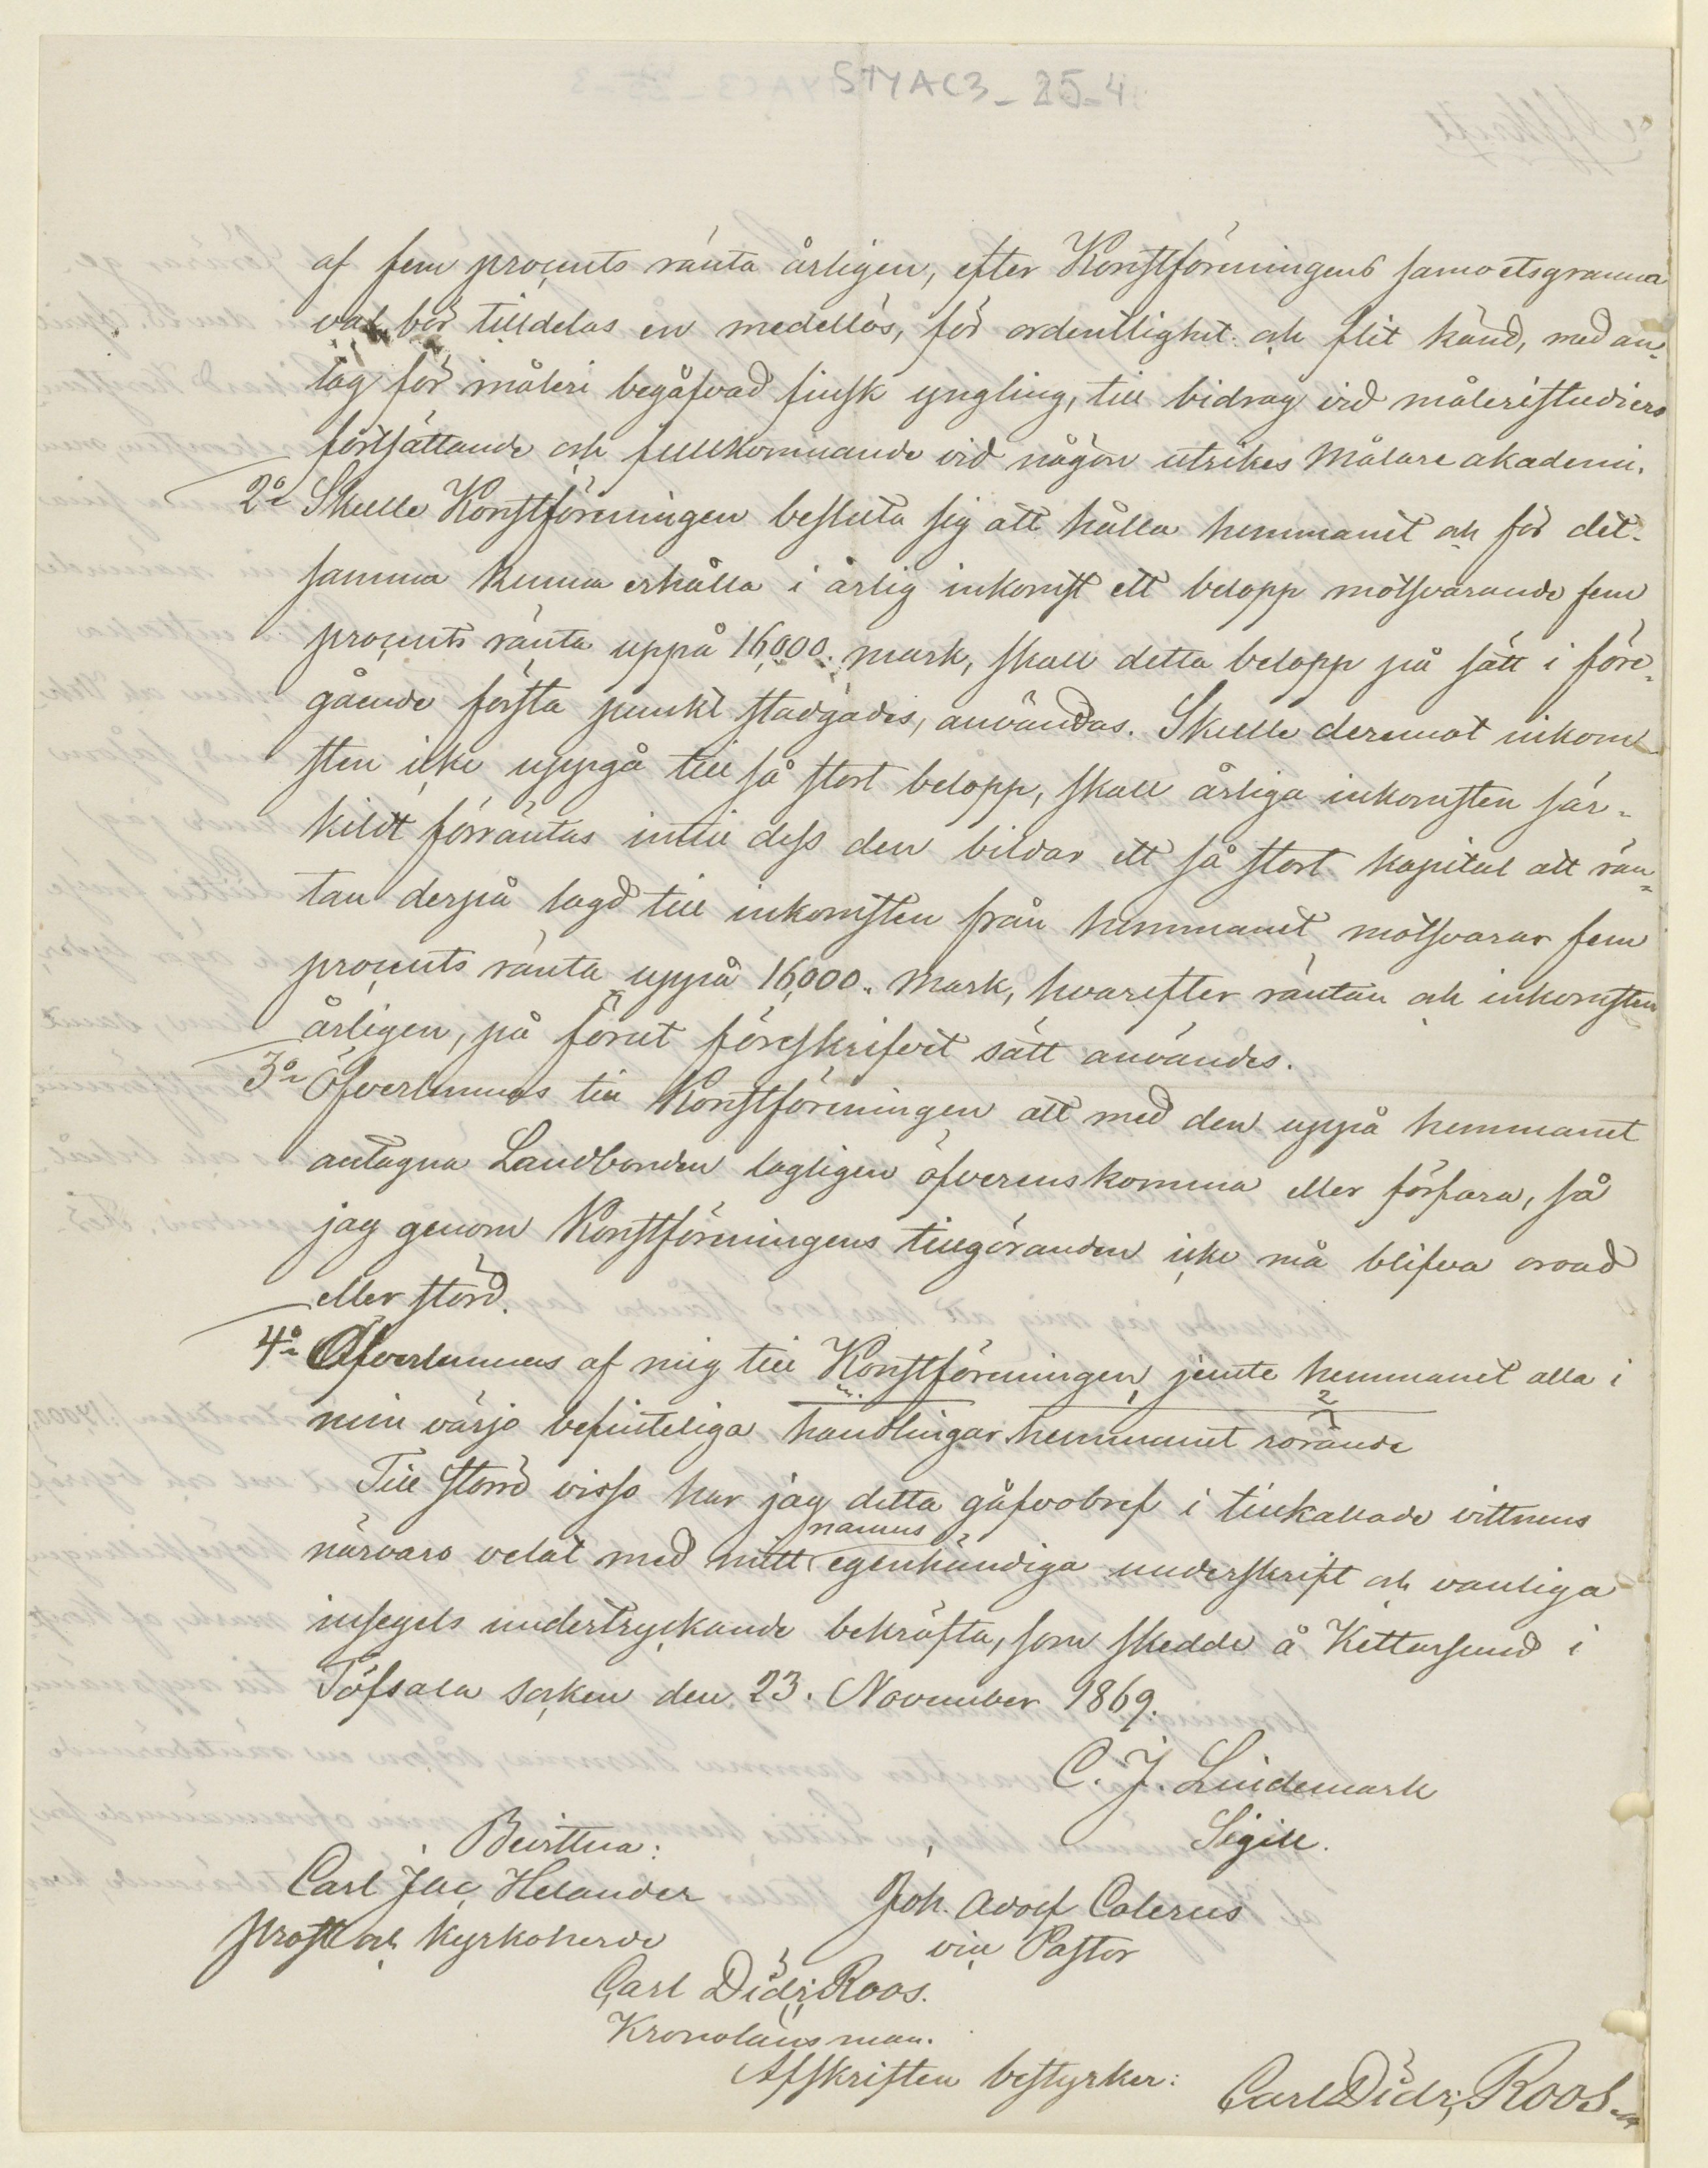 STYAC3_25_4
af fem proçents ränta årligen, efter Konstföreningens samvetsgranna
val bör tilldelas en medellös, för ordentlighet och flit känd, med an-
lag för måleri begåfvad finsk yngling, till bidrag vid måleristudiers
fortsättande och fullkomnande vid någon utrikes Målare akademi.
2o Skulle Konstföreningen besluta sig att hålla hemmanet och för det-
samma kunna erhålla i årlig inkomst ett belopp motsvarande fem
proçents ränta uppå 16,000. mark, skall detta belopp på sätt i före-
gående första punkt stadgades, användas. Skulle deremot inkom-
sten icke uppgå till så stort belopp, skall årliga inkomsten sär-
kildt förräntas intill dess den bildar ett så stort kapital att rän-
tan derpå lagd till inkomsten från hemmanet motsvarar fem
proçents ränta uppå 16,000. mark, hvarefter räntan och inkomsten
årligen, på förut föreskrifvit sätt användes.
3o Öfverlemnas till Konstföreningen att med den uppå hemmanet
antagna Landbonden lagligen öfverenskomma eller förfara, så
jag genom Konstföreningens tillgöranden icke må blifva oroad
eller störd.
4o Öfverlemnas af mig till Konstföreningen, jemte hemmanet alla i
min värjo befinteliga handlingar hemmanet rörande
Till störrd visso har jag detta gåfvobref i tillkallade vittnens
närvaro velat med mitt egenhändiga underskrift och vanliga
namns
insegels undertryckande bekräfta, som skedde å Kettarsund i
Töfsala socken den 23. November 1869.
C. J. Lindemark
Sigill.
Bevittna:
Carl Jac Helander
Prost och Kyrkoherde
Joh. Adolf Calerus
vice Pastor
Carl Didr; Roos.
Kronolänsman.
Afskriften bestyrker:
Carl Didr; Roos